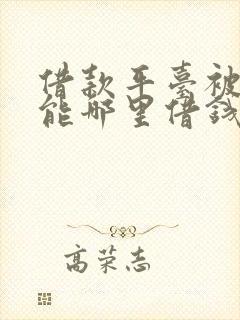 借款平臺被
能哪里借錢
高荣志